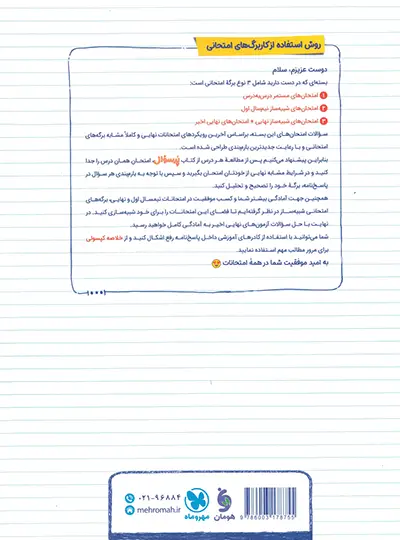 روش استفاده از کاربرگ‌های امتحانی
دوست عزیزم، سلام
بسته‌ای که در دست دارید شامل ۳ نوع برگهٔ امتحانی است:
۱ امتحان‌های مستمر درس‌به‌درس
۲ امتحان‌های شبیه‌ساز نیم‌سال اول
۳ امتحان‌های شبیه‌ساز نهایی + امتحان‌های نهایی اخیر
سؤالات امتحان‌های این بسته، براساس آخرین رویکردهای امتحانات نهایی و کاملاً مشابه برگه‌های
امتحانی و با رعایت جدیدترین بارم‌بندی طراحی شده است.
بنابراین پیشنهاد می‌کنیم پس از مطالعهٔ هر درس از کتاب پُرسؤال، امتحان همان درس را جدا
کنید و در شرایط مشابه نهایی از خودتان امتحان بگیرید و سپس با توجه به بارم‌بندی هر سؤال در
پاسخ‌نامه، برگهٔ خود را تصحیح و تحلیل کنید.
همچنین جهت آمادگی بیشتر شما و کسب موفقیت در امتحانات نیم‌سال اول و نهایی، برگه‌های
امتحانی شبیه‌ساز در نظر گرفته‌ایم تا فضای این امتحانات را برای خود شبیه‌سازی کنید. در
نهایت با حل سؤالات آزمون‌های نهایی اخیر به آمادگی کامل خواهید رسید.
شما می‌توانید با استفاده از کادرهای آموزشی داخل پاسخ‌نامه رفع اشکال کنید و از خلاصه کپسولی
برای مرور مطالب مهم استفاده نمایید.
به امید موفقیت شما در همهٔ امتحانات
۰۲۱-۹۶۸۸۴
mehromah.ir
مهروماه
هومان
9 786003 178765